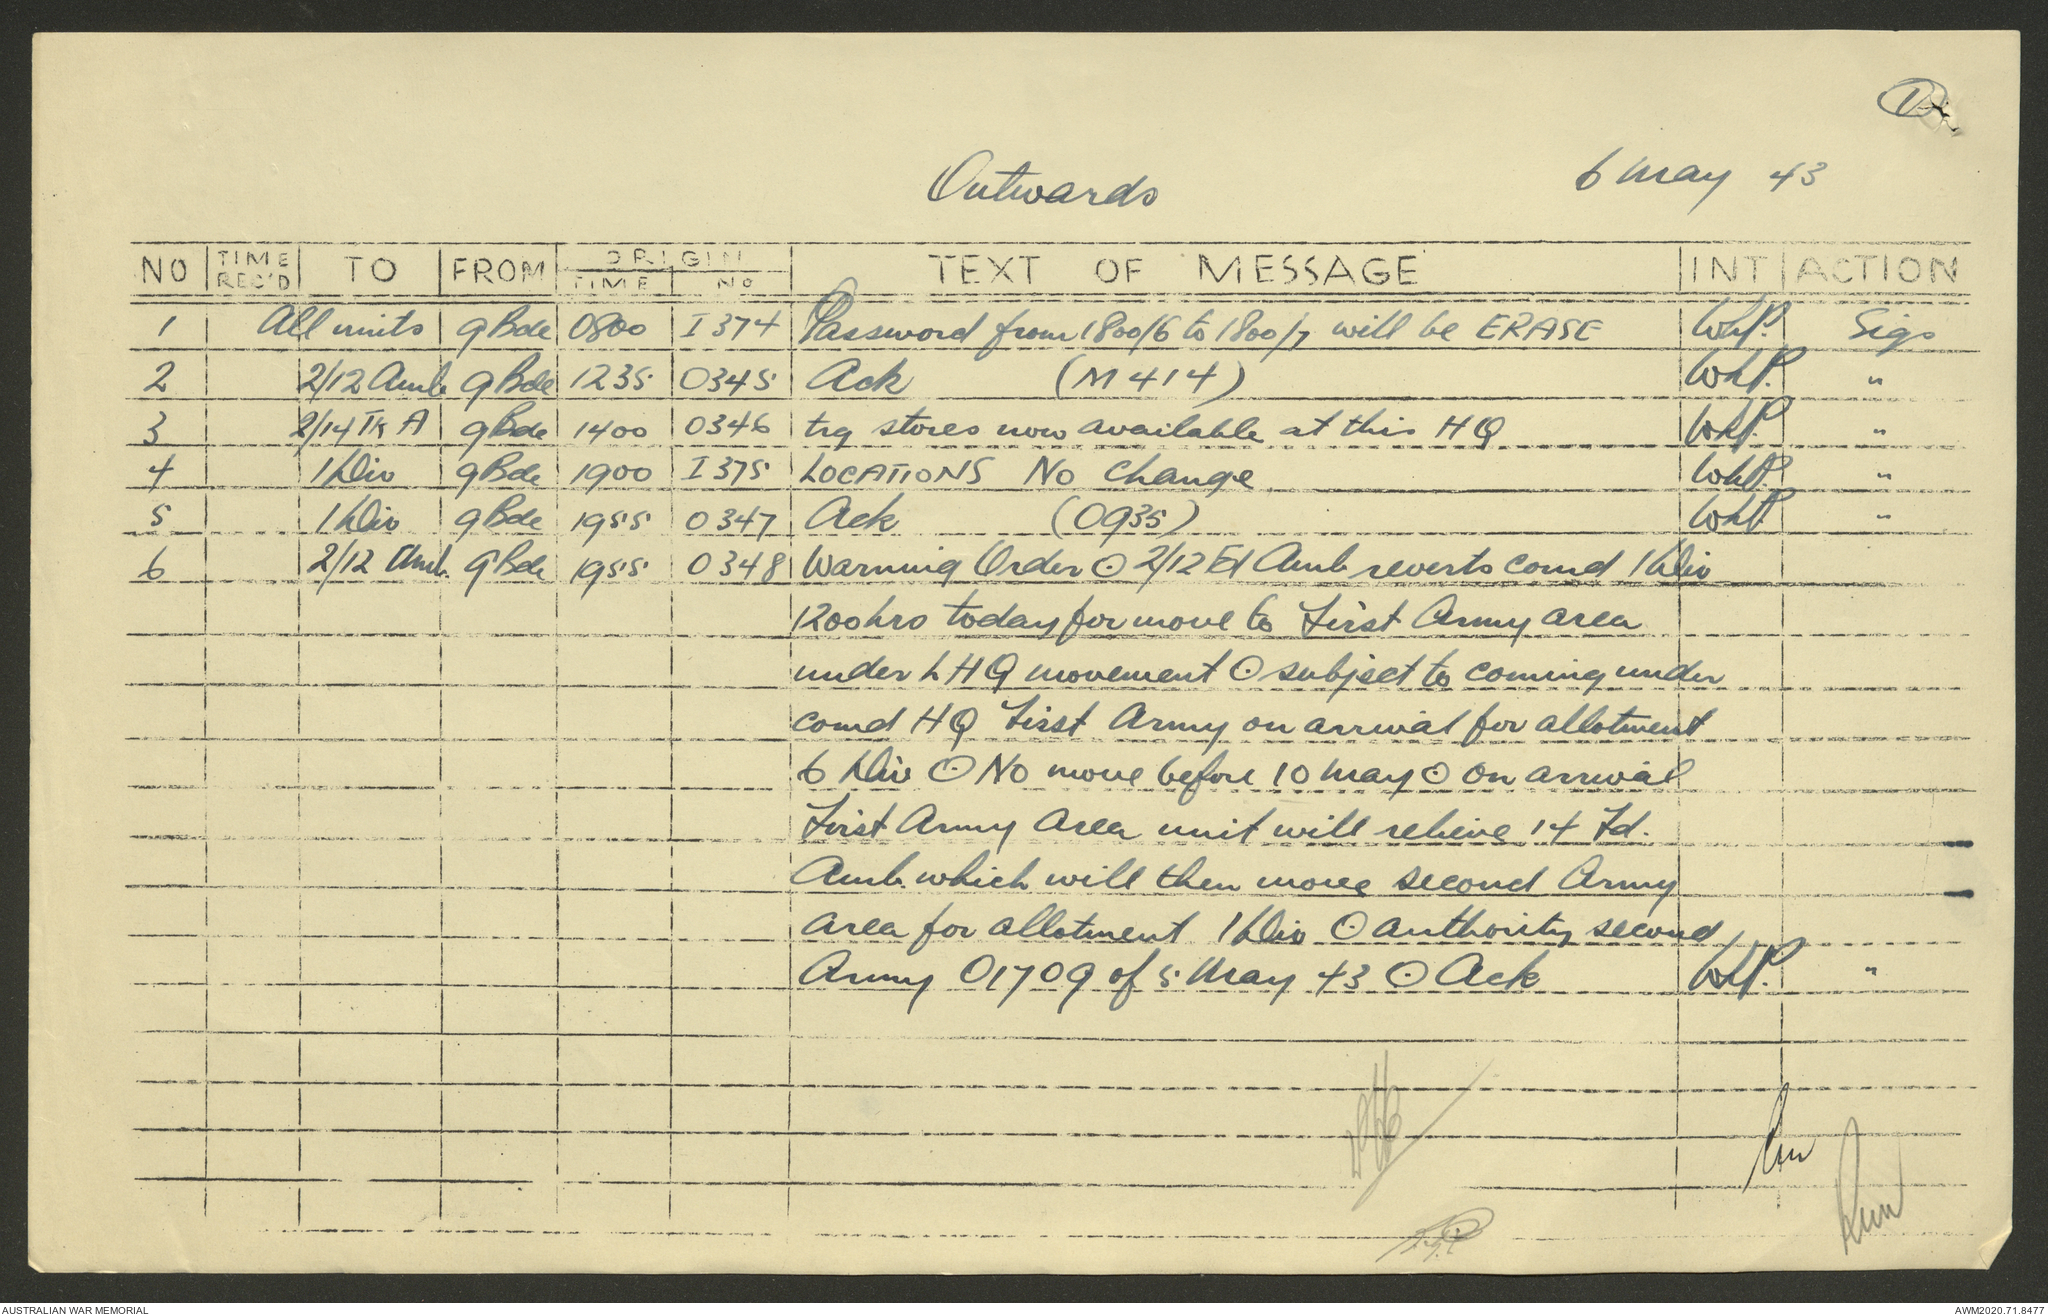 1
Outwards 6 May 43
NO TIME REC'D TO FROM ORIGIN TIME No TEXT OF MESSAGE INT ACTION
1 All units 9 Bde 0800 I 374 Password from 1800/6 to 1800/7 will be ERASE WhP. Sigs
2 2/12 Amb 9 Bde 1235 0345 Ack (M 414) WhP. "
3 2/14 Tk A 9 Bde 1400 0346 trg stores now available at this HQ WhP. "
4 1 Div 9 Bde 1900 I 375 LOCATIONS No Change WhP. "
5 1 Div 9 Bde 1955 0347 Ack (0935) WhP "
6 2/12 Amb. 9 Bde 1955 0348 Warning Order ⊙ 2/12 Fd Amb reverts comd 1 Div
1200 hrs today for move to First Army area
under L HQ movement ⊙ subject to coming under
comd HQ First Army on arrival for allotment
6 Div ⊙ No move before 10 May ⊙ on arrival
First Army Area unit will relieve 14 Fd.
Amb. which will then move second Army
area for allotment 1 Div ⊙ authority second
Army 01709 of 5 May 43 ⊙ Ack WhP. "
AUSTRALIAN WAR MEMORIAL AWM2020.71.8477